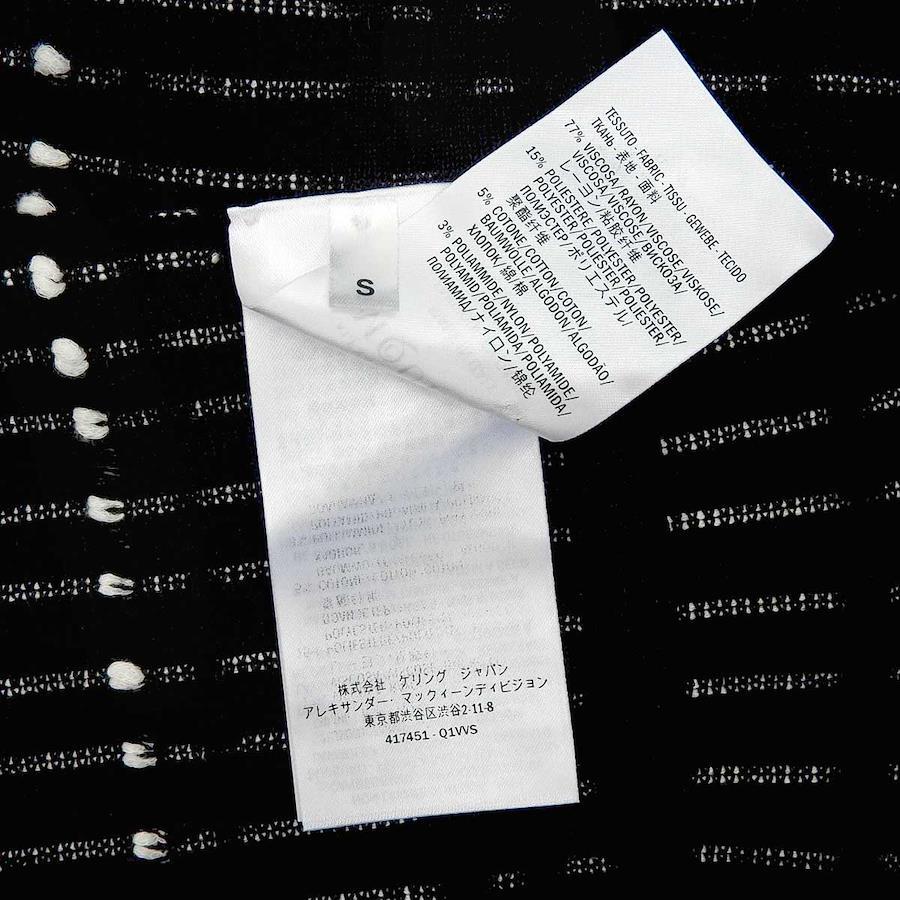 TESSUTO - FABRIC - TISSU - GEWEBE - TECIDO
ТКАНЬ - 表地 - 面料
77% VISCOSA/RAYON/VISCOSE/VISKOSE/
VISCOSA/VISCOSE/ВИСКОЗА/
レーヨン/粘胶纤维
15% POLIESTERE/POLYESTER/POLYESTER/
POLYESTER/POLIESTER/POLIESTER/
ПОЛИЭСТЕР/ポリエステル/
聚酯纤维
5% COTONE/COTTON/COTON/
BAUMWOLLE/ALGODON/ALGODÃO/
ХЛОПОК/綿/棉
3% POLIAMMIDE/NYLON/POLYAMIDE/
POLYAMID/POLIAMIDA/POLIAMIDA/
ПОЛИАМИД/ナイロン/锦纶
S
株式会社 ケリング ジャパン
アレキサンダー・マックイーンディビジョン
東京都渋谷区渋谷2-11-8
417451 - Q1VVS